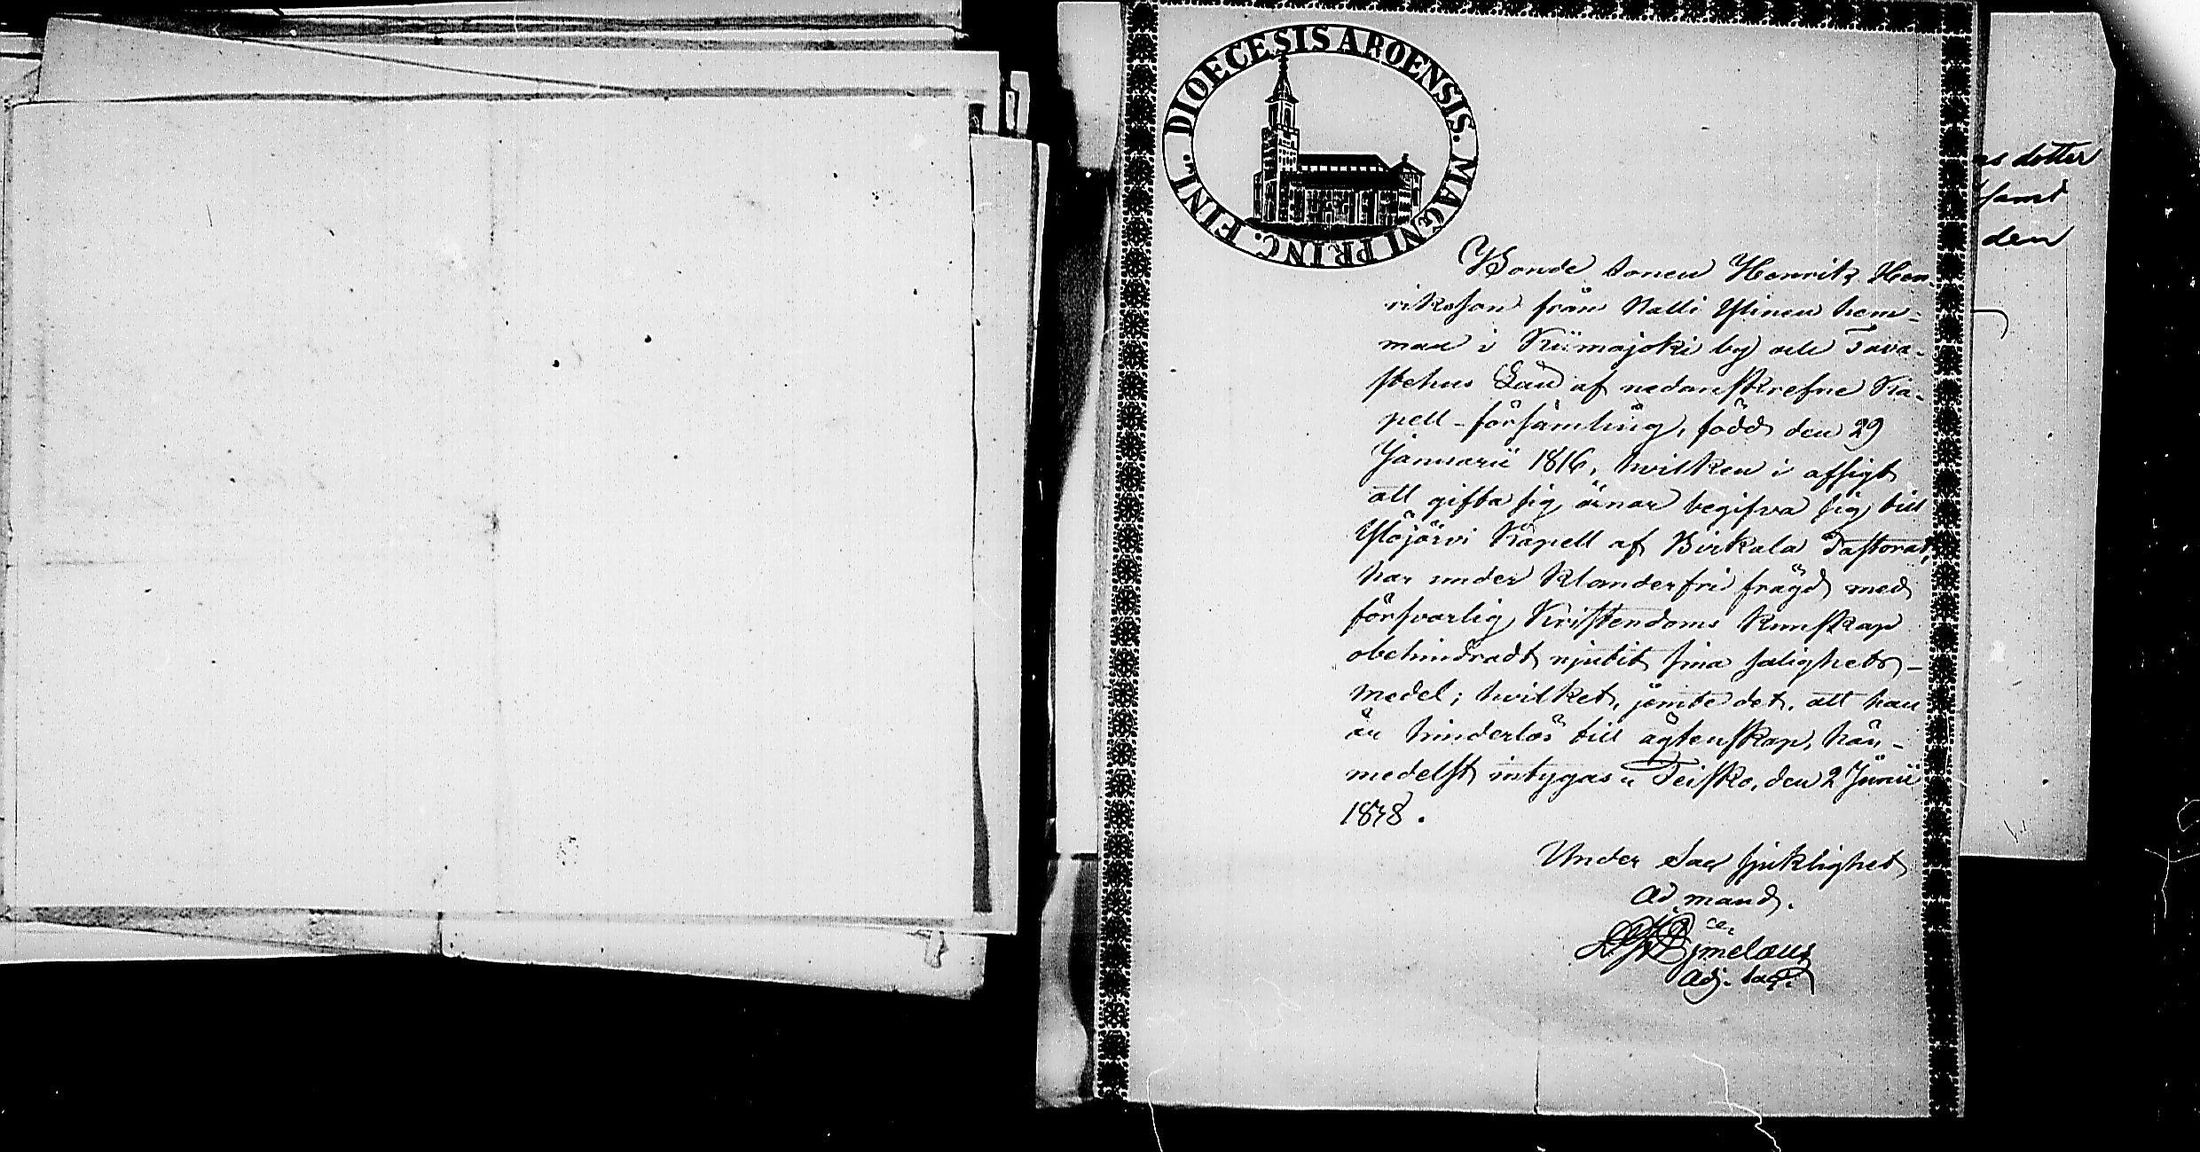 DIOECESIS ABOENSIS. MAGNI PRINC. FINL.
Bonde sonen Henrik Hen-
riksson från Nalli Ylinen hem-
man i Kiimajoki by och Tava-
stehus Län af nedanskrefne Ka-
pell-församling, född den 29
Januarii 1816, hvilken i afsigt
att gifta sig ärnar begifva sig till
Ylöjärvi Kapell af Birkala Pastorat,
har under klanderfri frägd med
försvarlig Kristendoms Kunskap
obehindradt njutit sina salighets-
medel; hvilket, jemte det, att han
är hinderlös till ägtenskap, här-
medelst intygas. Teisko, den 2 Junii
1848.
Under Sac sjuklighet
ad mand.
Adj. Sac.
s dotter
samt
den